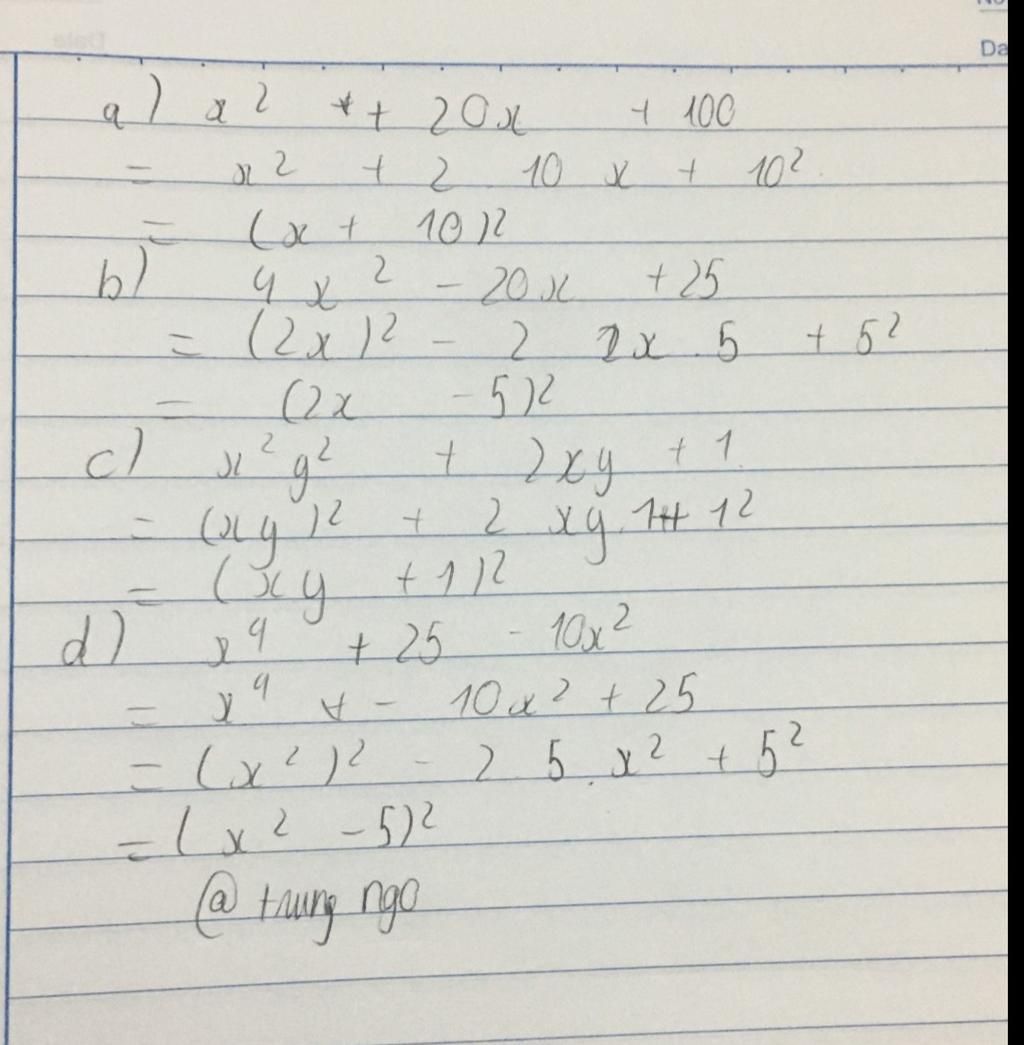 No
Da
a) x² + 20x + 100
= x² + 2 . 10 x + 10²
= (x + 10)²
b) 4x² - 20x + 25
= (2x)² - 2 2x . 5 + 5²
= (2x - 5)²
c) x²y² + 2xy + 1
= (xy)² + 2 xy . 1 + 1²
= (xy + 1)²
d) x⁴ + 25 - 10x²
= x⁴ - 10x² + 25
= (x²)² - 2 . 5 . x² + 5²
= (x² - 5)²
@ trung ngo